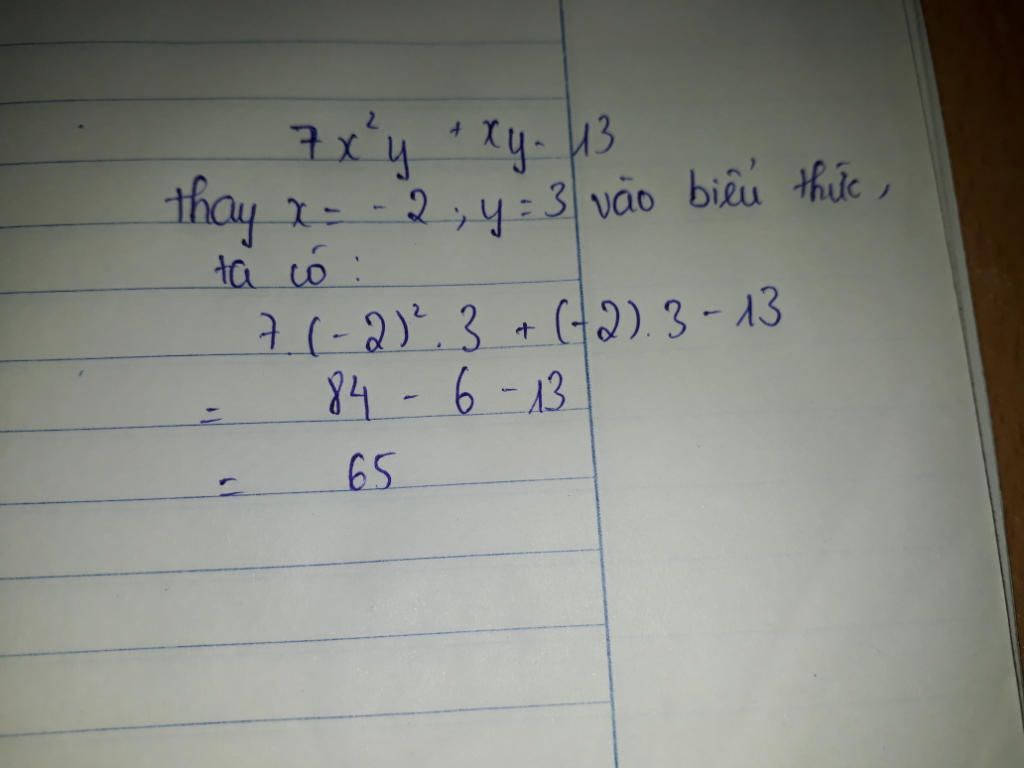 7x²y + xy - 13
thay x = - 2 ; y = 3 vào biểu thức,
ta có :
7.(-2)² . 3 + (-2). 3 - 13
= 84 - 6 - 13
= 65